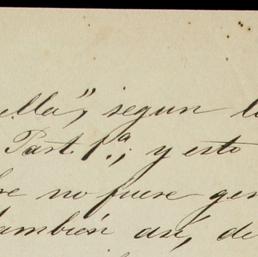 ella", segun l
Part. 1.ª; y esto
re no fuere gen
tambien asi, de